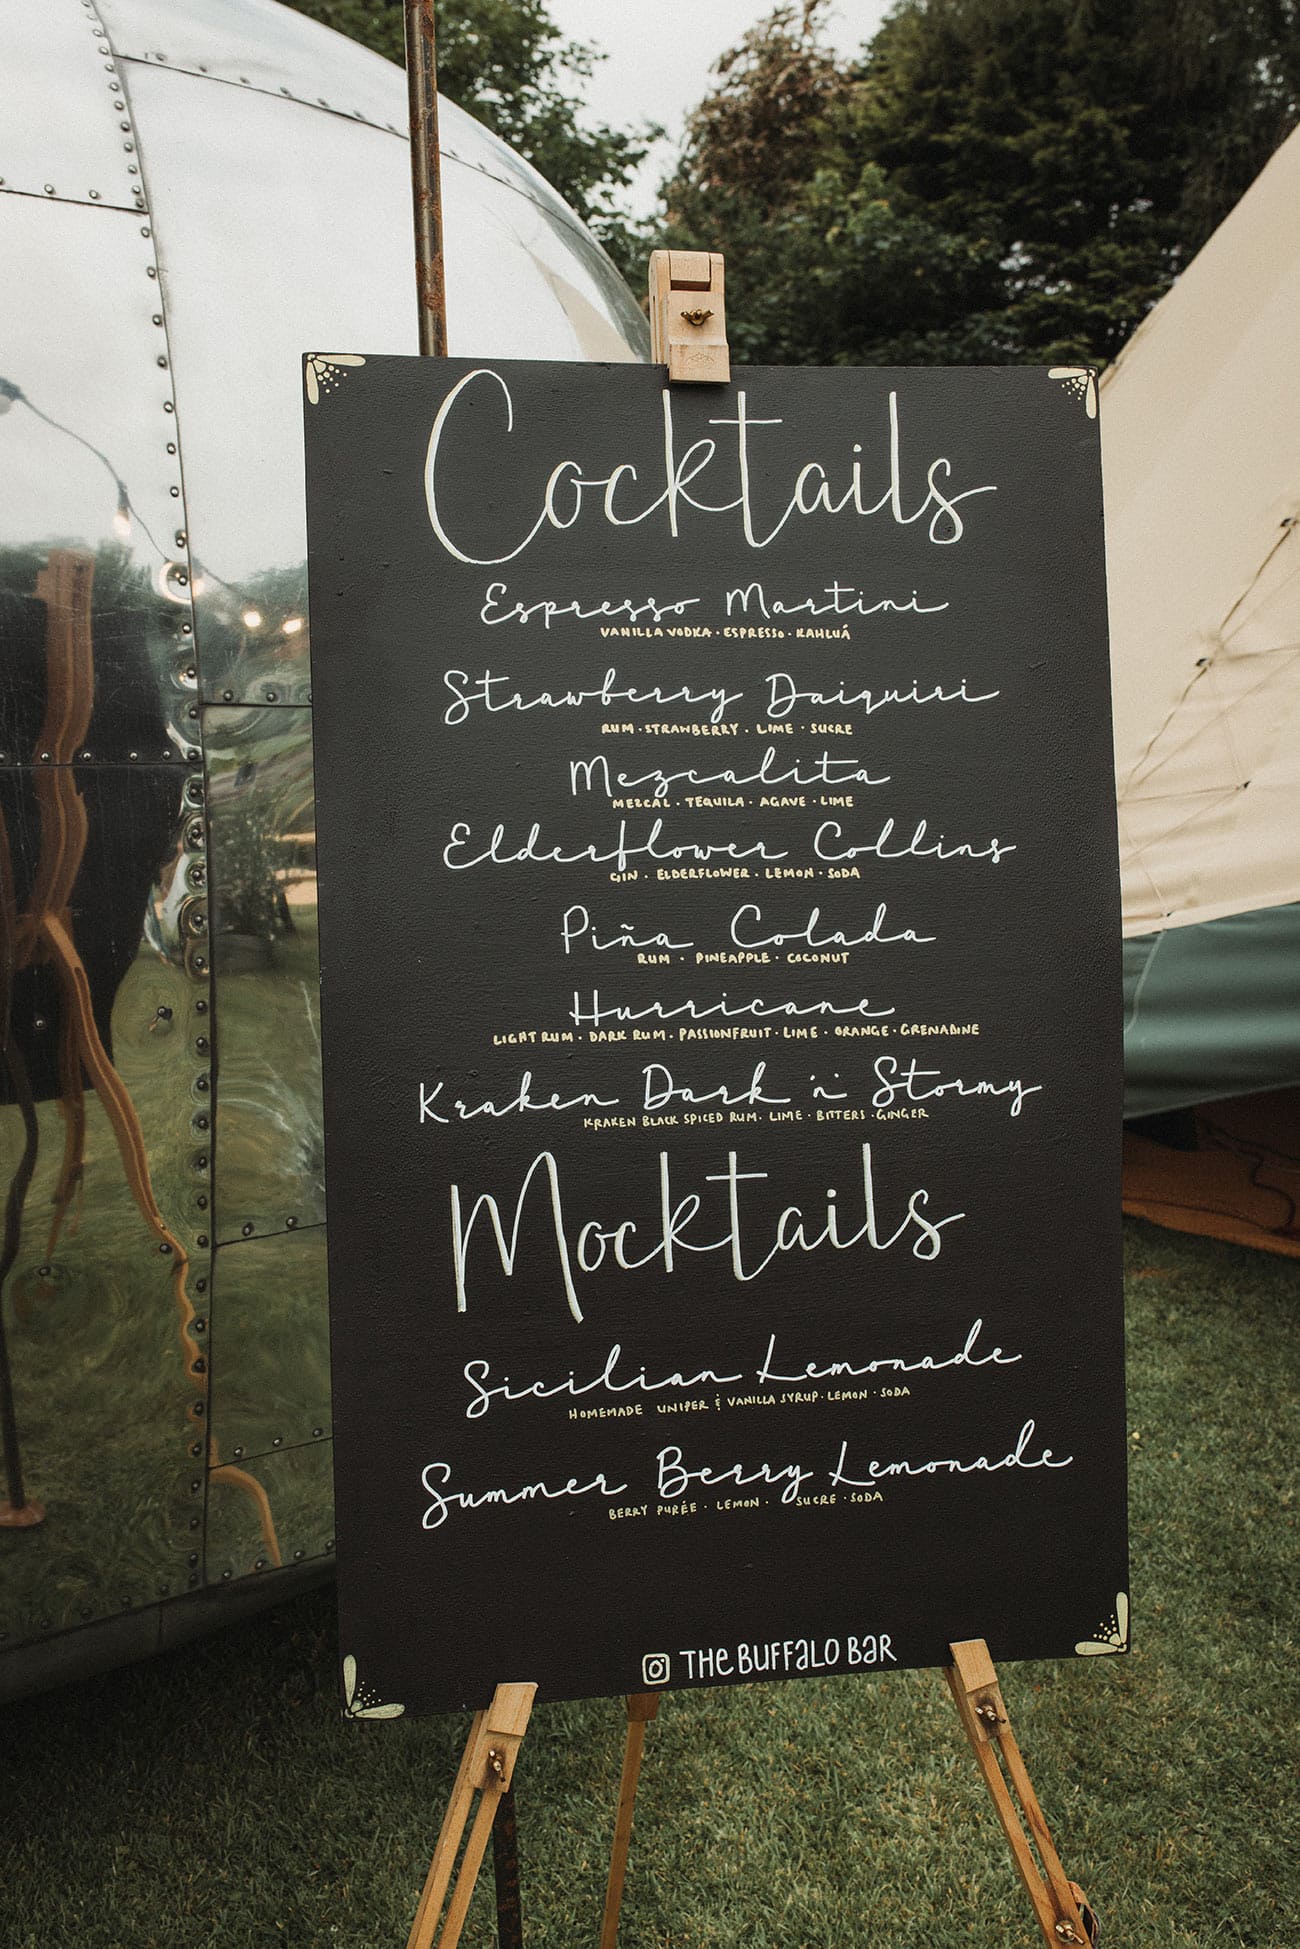 Cocktails
Espresso Martini
VANILLA VODKA · ESPRESSO · KAHLUÁ
Strawberry Daiquiri
RUM · STRAWBERRY · LIME · SUCRE
Mezcalita
MEZCAL · TEQUILA · AGAVE · LIME
Elderflower Collins
GIN · ELDERFLOWER · LEMON · SODA
Piña Colada
RUM · PINEAPPLE · COCONUT
Hurricane
LIGHT RUM · DARK RUM · PASSIONFRUIT · LIME · ORANGE · GRENADINE
Kraken Dark 'n' Stormy
KRAKEN BLACK SPICED RUM · LIME · BITTERS · GINGER
Mocktails
Sicilian Lemonade
HOMEMADE UNIPER & VANILLA SYRUP · LEMON · SODA
Summer Berry Lemonade
BERRY PURÉE · LEMON · SUCRE · SODA
THE BUFFALO BAR